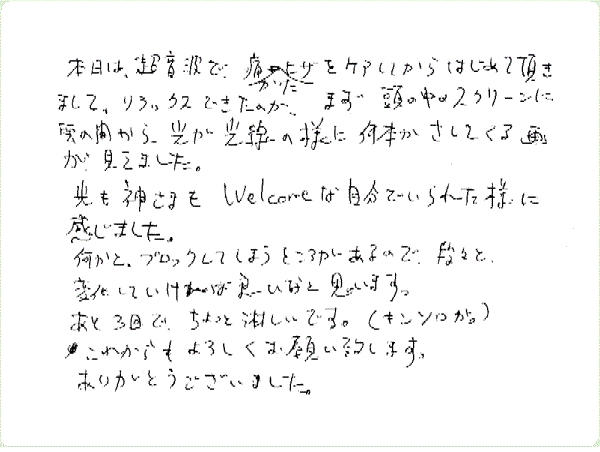 本日は、超音波で 痛かったヒザをケアしてからはじめて頂き
まして、リラックスできたのか、まず 頭の中のスクリーンに
雲の間から、光が光線の様に何本かさしてくる画
が見えました。
光も神さまも Welcomeな自分でいられた様に
感じました。
何かと、ブロックしてしまうところがあるので、段々と、
変化していければ良いなと思います。
あと3回で、ちょっと淋しいです。(キンソロが。)
これからもよろしくお願い致します。
ありがとうございました。